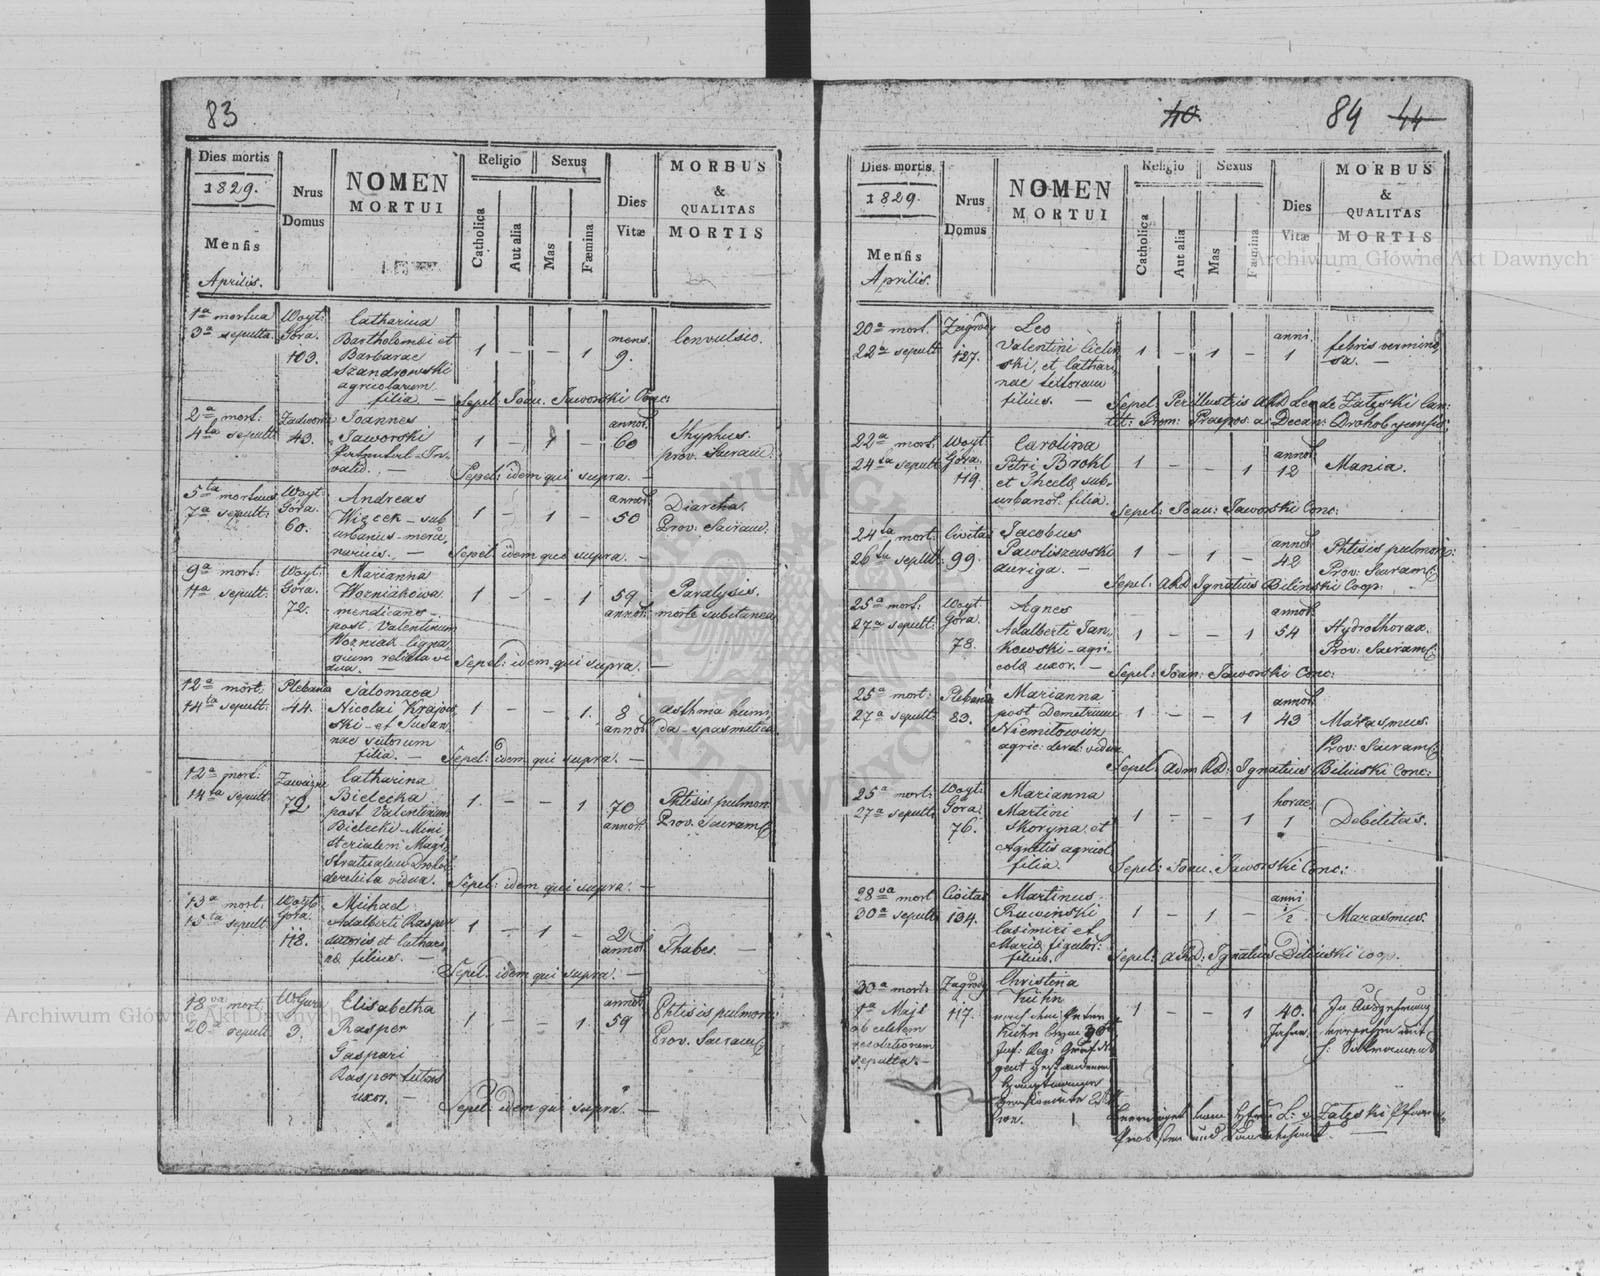 83
Dies mortis
1829.
Mensis
Aprilis.
Nrus
Domus
NOMEN
MORTUI
Religio
Sexus
Catholica
Aut alia
Mas
Fæmina
Dies
Vitæ
MORBUS
&
QUALITAS
MORTIS
1a mortua
3a sepulta
Woyt:
Góra.
103.
Catharina
Bartholomæi et
Barbarae
Szandrowski
agricolarum
filia. —
1 — — 1
mens.
9.
Convulsio.
Sepel: Joan. Jaworski Conc:
2a mort.
4ta sepult:
Zadworne
43.
Joannes
Jaworski
valid. —
1 — 1 —
annor.
60
Thyphus.
prov. Sacram.
Sepel: idem qui supra. —
5ta mortuus
7a sepult:
Woyt.
Góra
60.
Andreas
Więcek – sub
urbanus – merce
narius. —
1 — 1 —
annor.
50
Diarrhea.
Prov: Sacram:
Sepel: idem qui supra. —
9a mort:
11a sepult:
Woyt:
Góra.
72.
Marianna
Wozniakowa
mendicans –
post Valentinum
Wozniak
relicta vi
dua. —
1 — — 1
59
annor.
Paralysis.
morte subitanea
Sepel: idem qui supra. —
12a mort:
14ta sepult:
Plebania
44.
Salomaea
Nicolai Krajew
ski – et Susan
nae sutorum
filia. —
1 — — 1.
8
annor.
Asthma humi
da – spasmatica
Sepel: idem qui supra. —
12a mort:
14ta sepult:
72.
Catharina
Bielecka
post Valentinum
Bielecki – Mini
sterialem Magi
stratualem Drohob:
derelicta vidua.
1. — — 1
70
annor.
Phtisis pulmon.
Prov. Sacram.
Sepel: idem qui supra. —
13a mort:
15ta sepult
Woyt
Góra.
118.
Michael
Adalberti Rasper
sutoris et Cathari
næ filius. —
1 — 1 —
2
annor.
Thabes. —
Sepel: idem qui supra. —
18va mort.
20a sepult
WGura
3.
Elisabetha
Rasper
Gaspari
Rasper sutoris
uxor. —
1 — — 1
annor.
59
Phtisis pulmon:
Prov. Sacram.
Sepel: idem qui supra. —
40
84
44
Dies mortis
1829.
Mensis
Aprilis.
Nrus
Domus
NOMEN
MORTUI
Religio
Sexus
Catholica
Aut alia
Mas
Fæmina
Dies
Vitæ
MORBUS
&
QUALITAS
MORTIS
20a mort.
22a sepult
Zagrody
127.
Leo
Valentini
ski, et Cathari
nae textorum
filius. —
1 — 1 —
anni
1
febris vermino
sa. —
Sepel: Perillustris ARD Leo de Zatęski Can:
tit: Prom: Praepos. a: Decan: Drohobycensis;
22a mort.
24ta sepult
Woyt
Góra:
119.
Carolina
Petri Brohl
et Theclæ sub
urbanor. filia.
1 — 1
annor.
12
Mania.
Sepel: Joan: Jaworski Conc:
24ta mort:
26ta sepult:
Civitas
99.
Jacobus
Pawliszewski
auriga. —
1 — 1 —
annor.
42
Phtisis pulmon:
Prov: Sacram:
Sepel: ARD Ignatius Bilinski Coop:
25a mort:
27a sepult:
Woyt.
Góra.
78.
Agnes
Adalberti Jan
kowski – agri
colæ uxor. —
1 — — 1
annor.
54
Hydrothorax.
Prov: Sacram:
Sepel: Joan: Jaworski Conc:
25a mort:
27a sepult
Plebania
83.
Marianna
post Demetrium
Niemitowicz
agric: derel: vidua
1 — — 1
annor.
43
Marasmus.
Prov: Sacram:
Sepel: Adm RD: Ignatius Bilinski Conc:
25a mort:
27a sepult:
Woyt:
Góra
76.
Marianna
Martini
Skoryna et
Agnetis agricol.
filia.
1 — — 1
horae
1
Debilitas.
Sepel: Joan. Jaworski Conc:
28va mort
30a sepult
Civitas
134.
Martinus
Ruwinski
Casimiri et
Mariæ figulor:
filius.
1 — 1 —
anni
1/2
Marasmus.
Sepel: ARD. Ignatius Bilinski Coop.
30a mort:
1a Maji
ob celerem
resolutionem
sepulta –
Zagrody
117.
Christina
Kühn
1 — — 1
40.
Jahre.
Archiwum Główne Akt Dawnych
Archiwum Główne Akt Dawnych